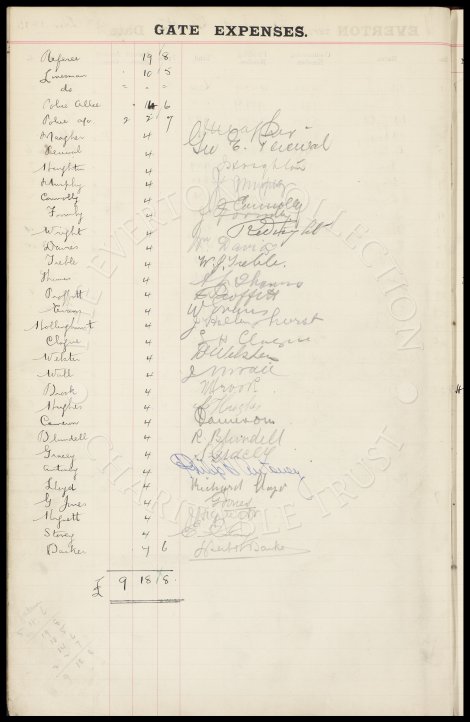 GATE EXPENSES.
Referee 19 8
Linesman 10 5
do " - "
Police Allce 14 6
Police a/c 2 2 7
Meagher 4
Percival 4 Geo E. Percival
Houghton 4 Houghton
Murphy 4 J Murphy
Connolly 4 J Connolly
Formby 4 Formby
Wright 4 R Wright
Davies 4 Wm Davies
Treble 4 W J Treble.
Thomas 4 Thomas
Proffitt 4 E Proffitt
Evans 4 W Evans
Hollinghurst 4 J Hollinghurst
Clague 4 E H Clague
Webster 4 D Webster
Wall 4
Brook 4 Brook
Hughes 4 Hughes
Cameron 4 Cameron
Blundell 4 R Blundell
Gracey 4 Gracey
4
Lloyd 4 Richard Lloyd
G Jones 4 G Jones
Hignett 4 Hignett
Storey 4
Barker 7 6 Herbert Barker
£ 9 18 8
THE EVERTON COLLECTION CHARITABLE TRUST